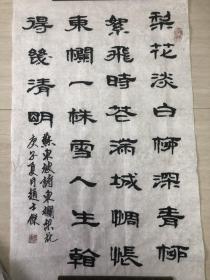 梨花淡白柳深青柳
絮飛時花滿城惆悵
東欄一株雪人生看
得幾清明
蘇東坡詩東欄梨花
庚子夏月趙士傑